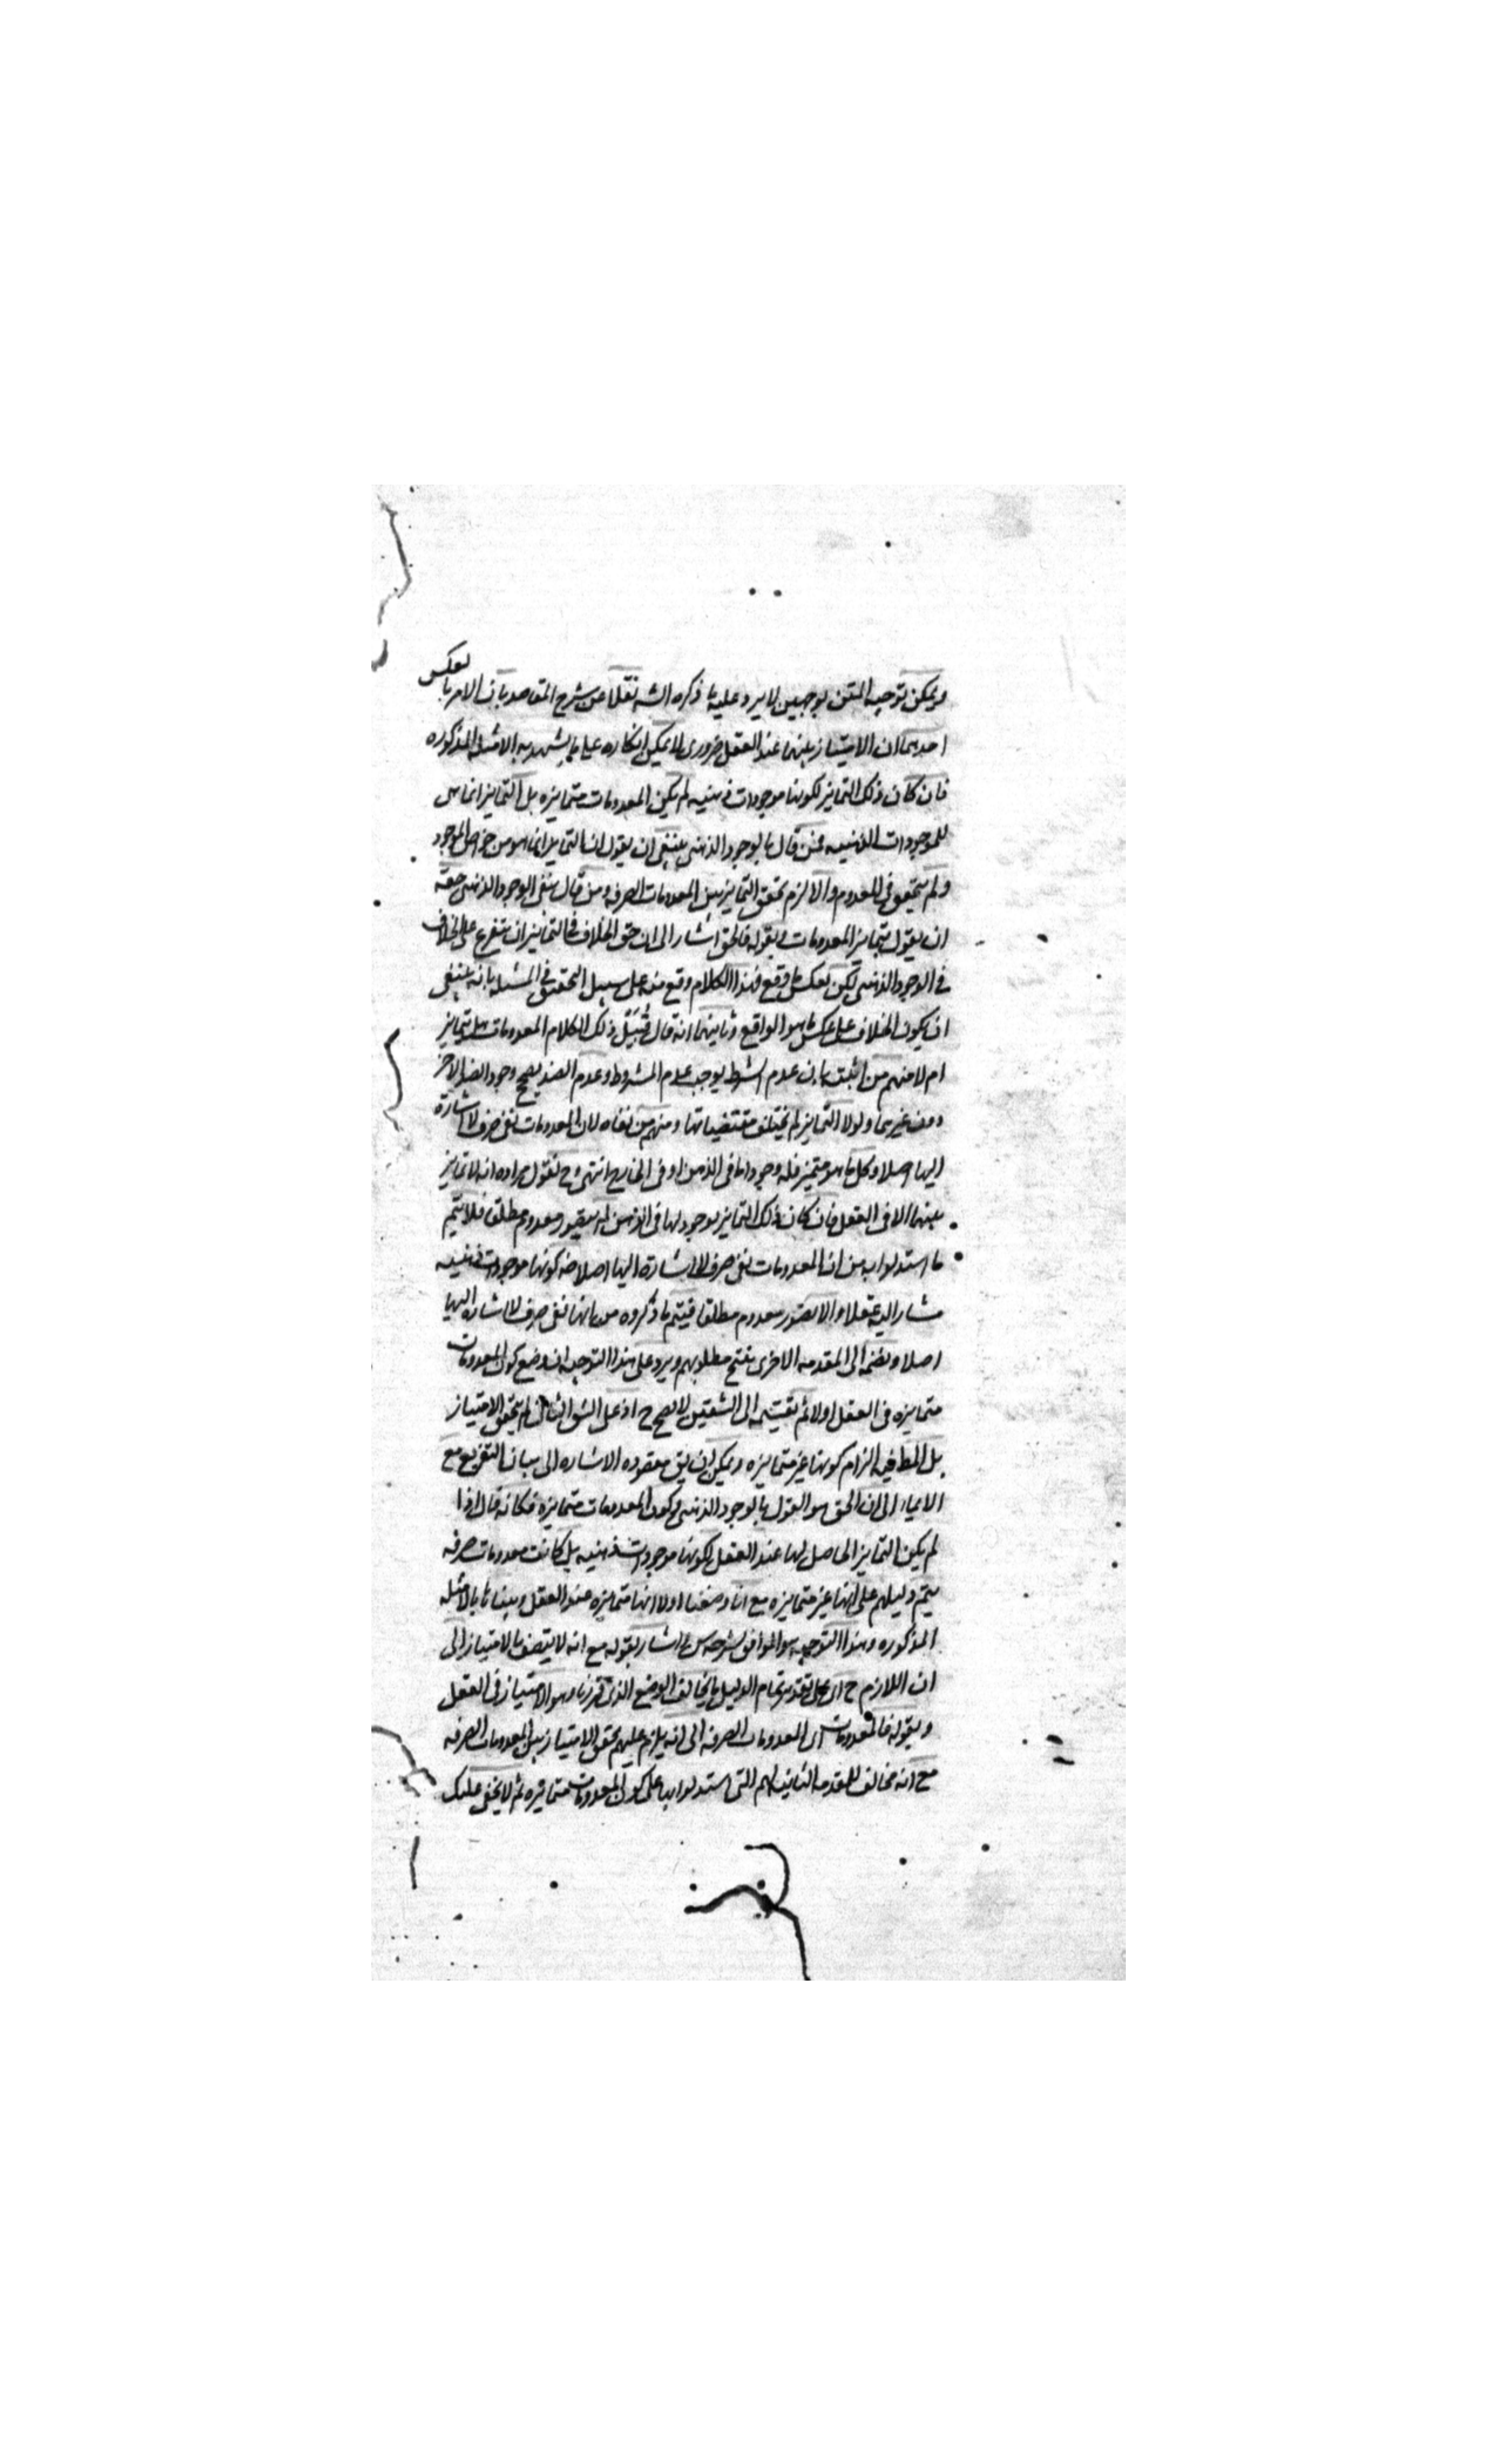 ويمكن توجيه المتن بوجهين لا يرد عليه ما ذكره الشه نقلا عن شرح المقاصد بان الامر بالعكس
احديهما ان الامتياز بينهما عند العقل ضروري لا يمكن انكاره على ما يشهد به الامثلة المذكوره
فان كان ذلك التمايز لكونها موجودات ذهنيه لم يكن المعدومات متمايزه بل التمايز انما هي
للموجودات الذهنيه فمن قال بالوجود الذهني ينبغي ان يقول ان التمايز انما هو من خواص الموجود
ولم يتحقق في المعدوم والا لزم تحقق التمايز بين المعدومات الصرفه ومن قال بنفي الوجود الذهني حقه
ان يقول بتمايز المعدومات وبقوله فالحق اشار الى ان حق الخلاف في التمايز ان يتفرع على الخلاف
في الوجود الذهني لكن بعكس ما وقع فهذا الكلام وقع منه على سبيل التحقيق في المسئله بانه ينبغي
ان يكون الخلاف على عكس ما هو الواقع وثانيهما انه قال قُبَيْلَ ذلك الكلام المعدومات هل يتمايز
ام لا منهم من اثبت بان عدم الشرط يوجب عدم المشروط وعدم الضد يصحح وجود الضد الاخر
دون غيرهما ولولا التمايز لم يختلف مقتضياتها ومنهم من نفاه لان المعدومات نفي صرف لا اشارة
اليها اصلا وكل ما هو متميز فله وجود اما في الذهن او في الخارج انتهى وح نقول مراده انه لا تمايز
بينها الا في العقل فان كان ذلك التمايز لوجود لها في الذهن لم يتصور معدوم مطلق فلا يتم
ما استدلوا به من ان المعدومات نفي صرف لا اشارة اليها اصلا ضه كونها موجودات ذهنيه
مشار اليه عقلا والا لتصور معدوم مطلقا فيتم ما ذكروه من انها نفي صرف لا اشارة اليها
اصلا وبضمه الى المقدمه الاخرى ينتج مطلوبهم ويرد على هذا التوجيه ان وضع كون المعدومات
متمايزه في العقل اولا ثم تقسيمه الى الشقين لا يصح ح اذ على الشق الثاني لم يتحقق الامتياز
بل المط فيه الزام كونها غير متمايزه ويمكن ان يق مقصوده الاشاره الى بيان التفريع مع
الايماء الى ان الحق هو القول بالوجود الذهني وكون المعدومات متمايزه فكانه قال اذا
لم يكن التمايز الحاصل لها عند العقل لكونها موجودات ذهنيه بل كانت معدومات صرفه
يتم دليلهم على انها غير متمايزه مع انا وضعنا اولا انها متمايزه عند العقل وبيناه بالامثله
المذكوره وهذا التوجيه هو الموافق لشرحه اشار بقوله مع انه لا يتصف بالامتياز الى
ان اللازم ح اي على تقدير تمام الدليل ما يخالف الوضع الذي قررنا وهو الامتياز في العقل
وبقوله فالمعدومات اي المعدومات الصرفه الى انه يلزم عليهم تحقق الامتياز بين المعدومات الصرفه
مع انه مخالف للمقدمه الثانيه لهم التي استدلوا بها على كون المعدومات متمايزه ثم لا يخفى عليك